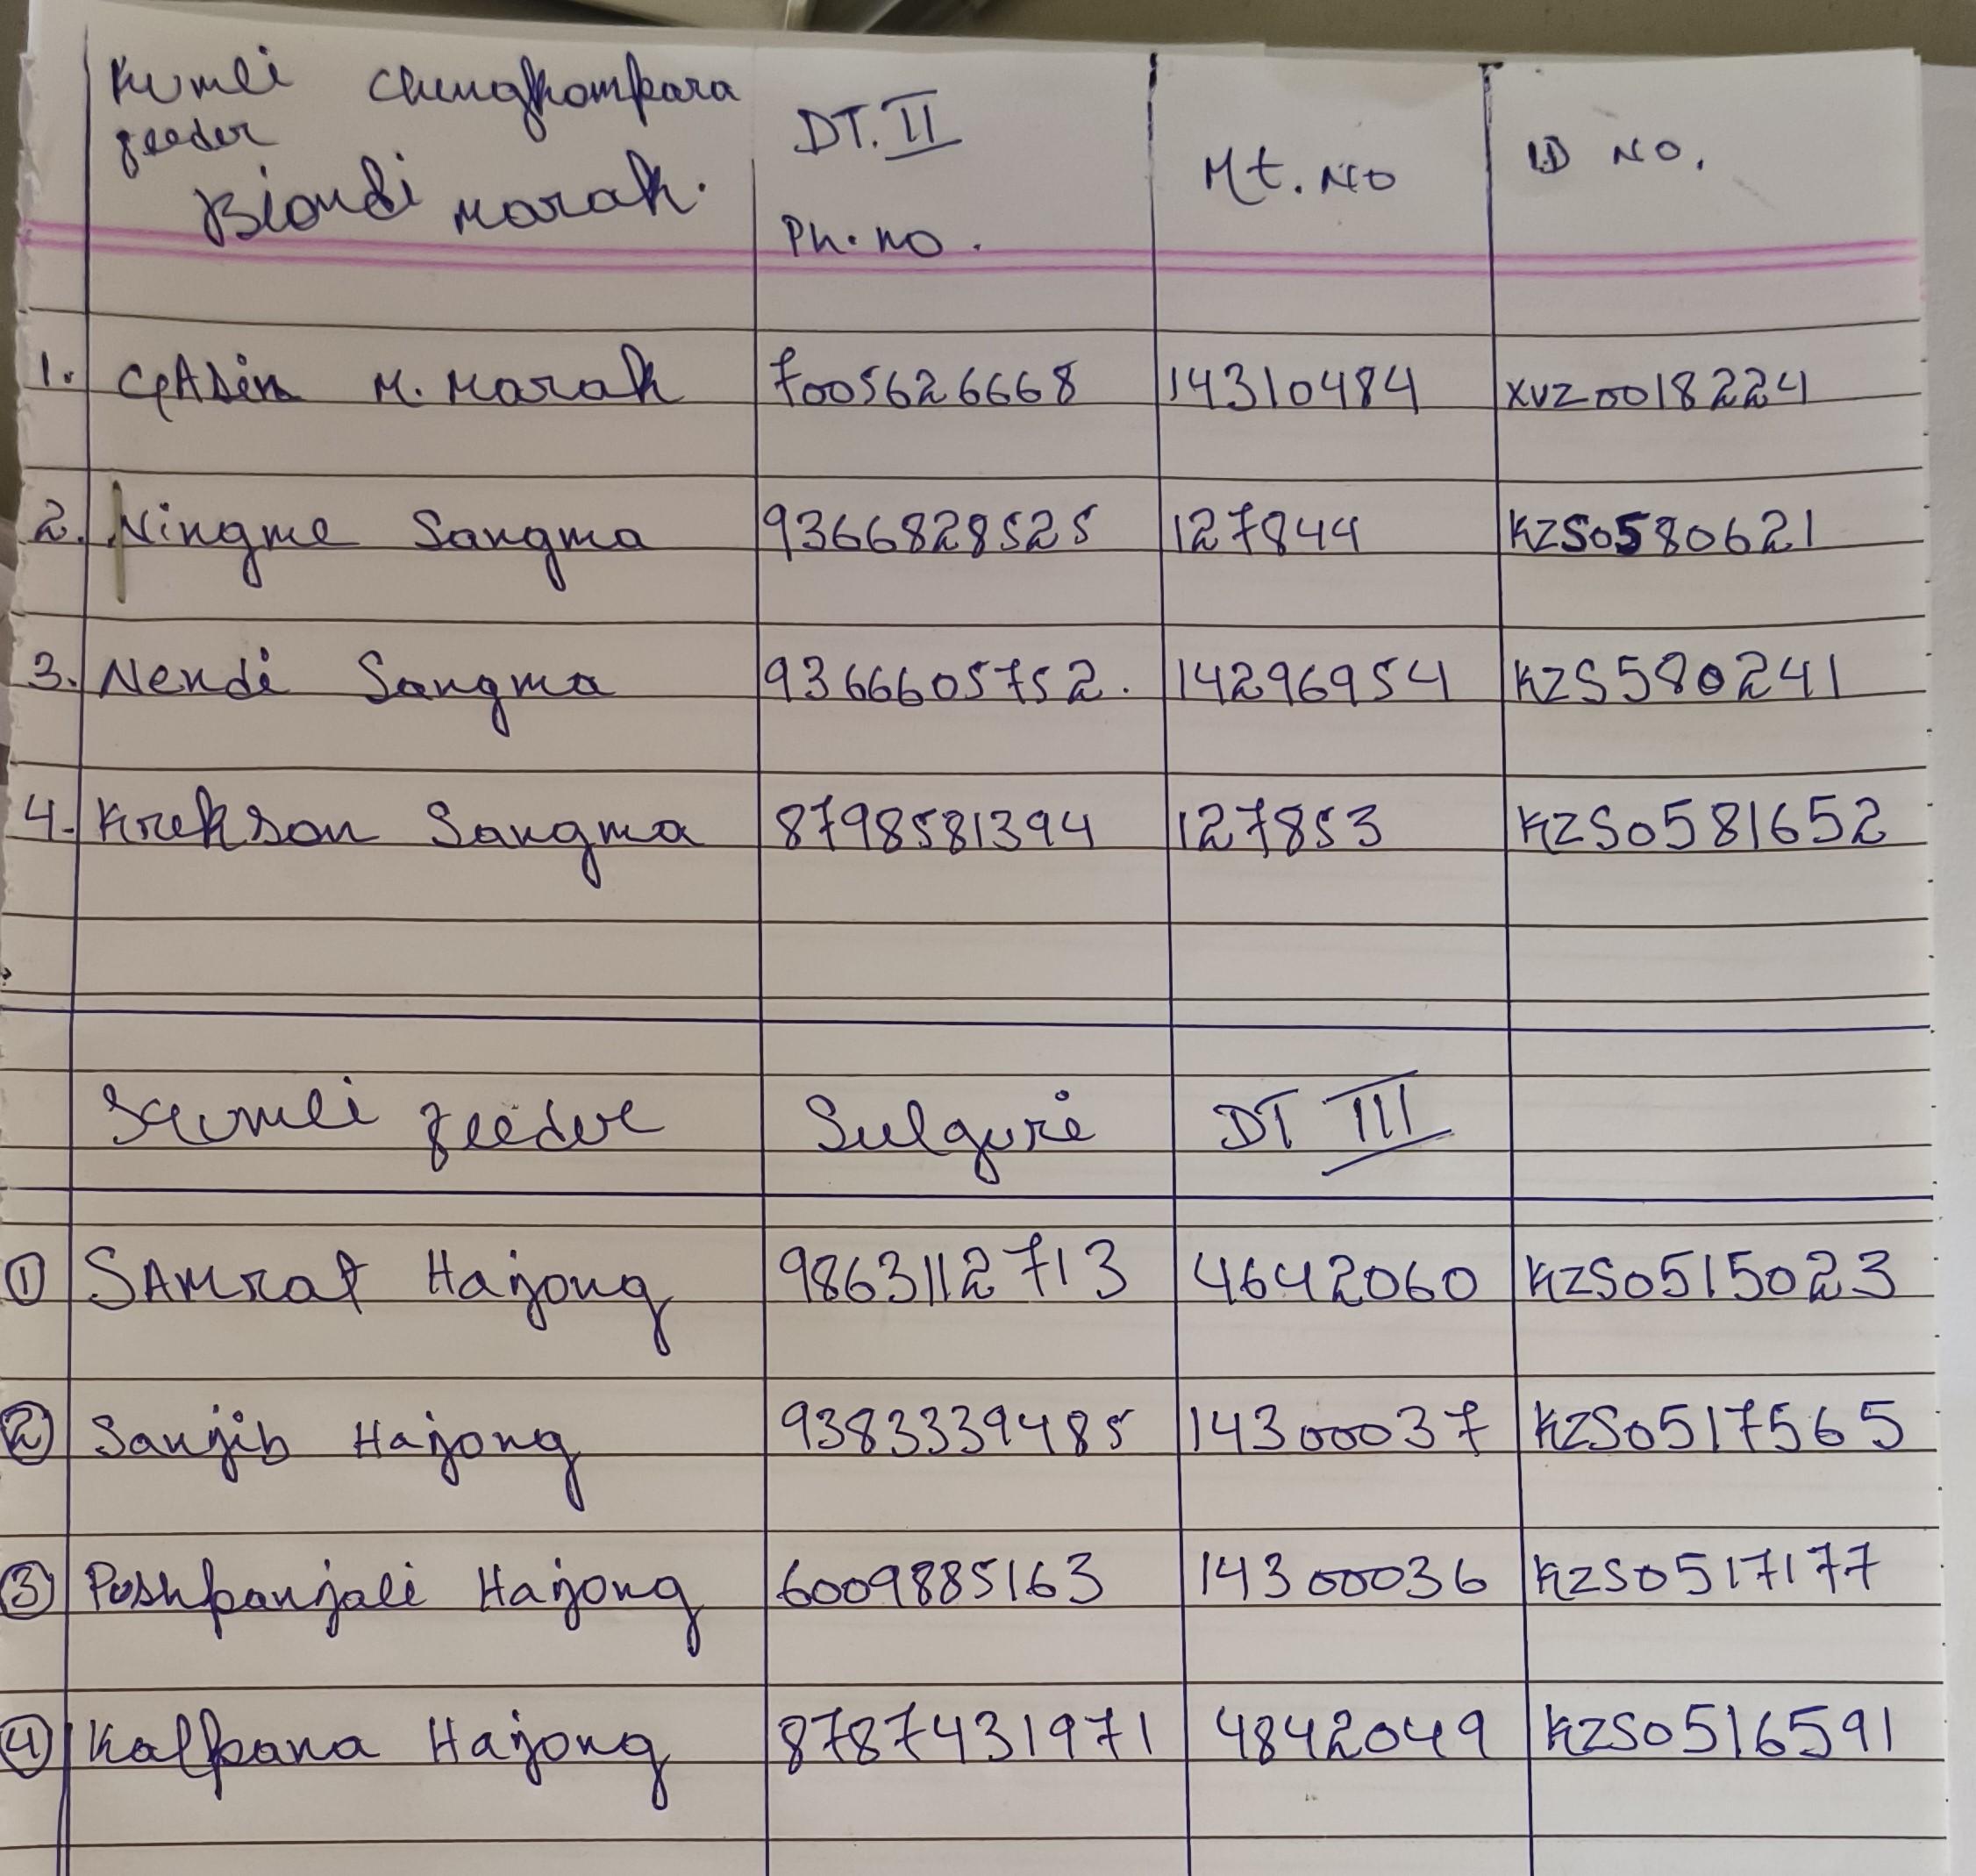 Kumli Chengkompara DT. II Mt. No ID NO.
feeder
Biondi Marak. Ph. no.
1. GAbin M. Marak 7005626668 14310484 XVZ0018224
2. Ningme Sangma 9366828525 127844 KZS0580621
3. Nendi Sangma 9366605752. 14296954 KZS580241
4. Krekson Sangma 8798581394 127853 KZS0581652
Kumli feeder Sulguri DT III
1 SAMrat Hajong 9863112713 4642060 KZS0515023
2 Sanjib Hajong 9383339485 14300037 KZS0517565
3 Poshpanjali Hajong 6009885163 14300036 KZS0517177
4 Kalpana Hajong 8787431971 4842049 KZS0516591